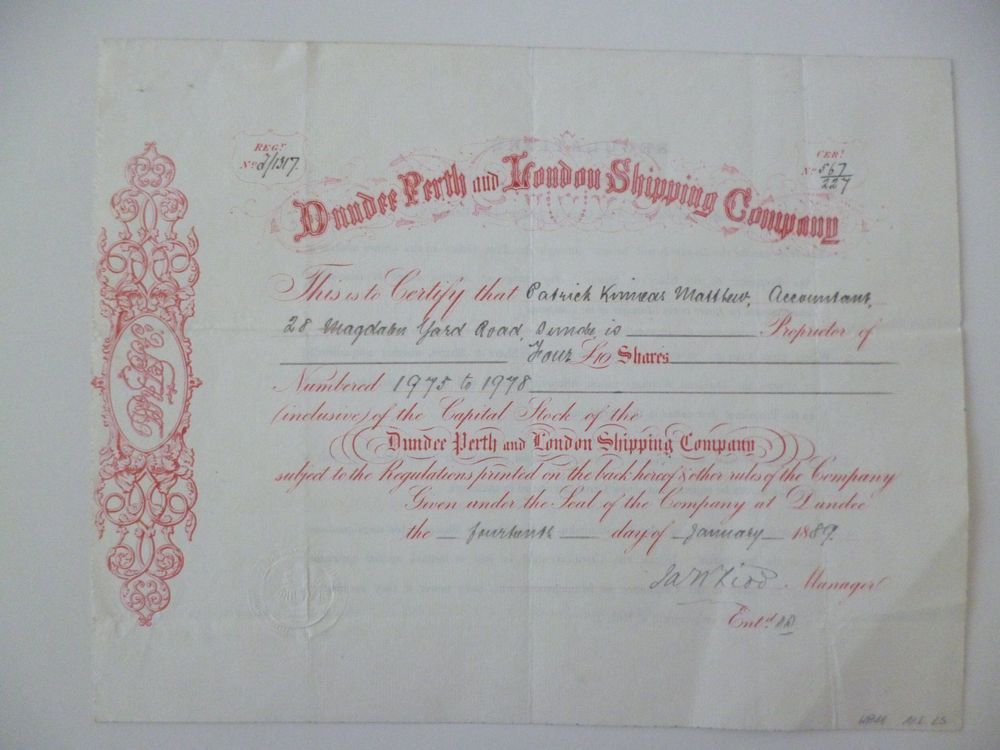 REGT.
No 2/1317.
CERT.
No 567/227
Dundee Perth and London Shipping Company
This is to Certify that Patrick Kinnear Matthew, Accountant,
28 Magdalen Yard Road, Dundee is Proprietor of
Four £10 Shares
Numbered 1975 to 1978
(inclusive) of the Capital Stock of the
Dundee Perth and London Shipping Company
subject to the Regulations printed on the back hereof & other rules of the Company
Given under the Seal of the Company at Dundee
the fourteenth day of January 1889.
Manager
Entd.